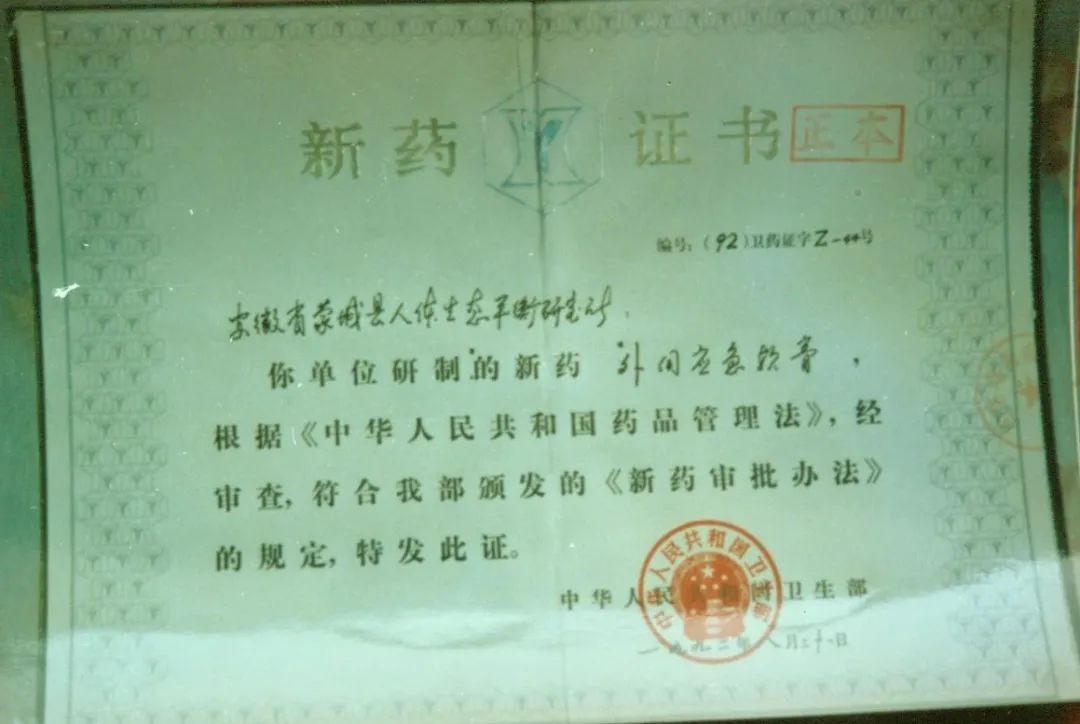 新药 证书 正本
编号：（92）卫药证字Z-44号
安徽省蒙城县人体生态平衡研究所：
你单位研制的新药
根据《中华人民共和国药品管理法》，经
审查，符合我部颁发的《新药审批办法》
的规定，特发此证。
中华人民共和国卫生部
一九九二年八月三十一日